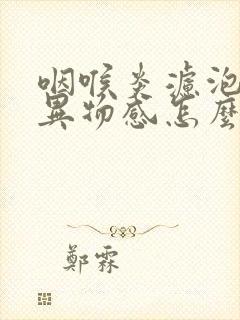 咽喉炎濾泡
異物感怎麼
鄭霖